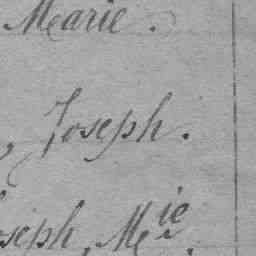 Marie.
, Joseph.
oseph, Mie.